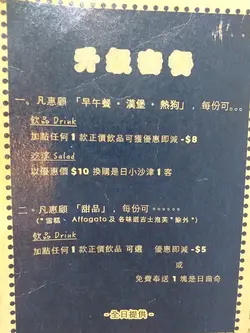 升級套餐
一。凡惠顧 「早午餐 • 漢堡 • 熱狗」，每份可。。。
飲品 Drink
加點任何 1 款正價飲品可獲優惠即減 -$8
沙律 Salad
以優惠價 $10 換購是日小沙津 1 客
二。凡惠顧 「甜品」，每份可。。。
(*雪糕、Affogato 及 各味遊吉士泡芙*除外*)
飲品 Drink
加點任何 1 款正價飲品 可選 優惠即減 -$5
或
免費奉送 1 塊是日曲奇
- 全日提供 -